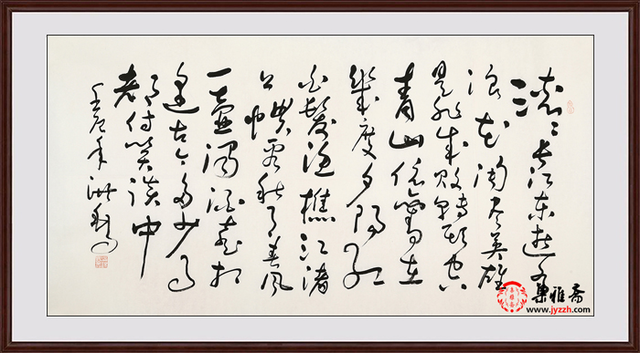 滚滚长江东逝水
浪花淘尽英雄
是非成败转头空
青山依旧在
几度夕阳红
白髮渔樵江渚
上惯看秋月春风
一壶浊酒喜相
逢古今多少事
都付笑谈中
壬辰年洪
集雅斋
www.jyzzh.com